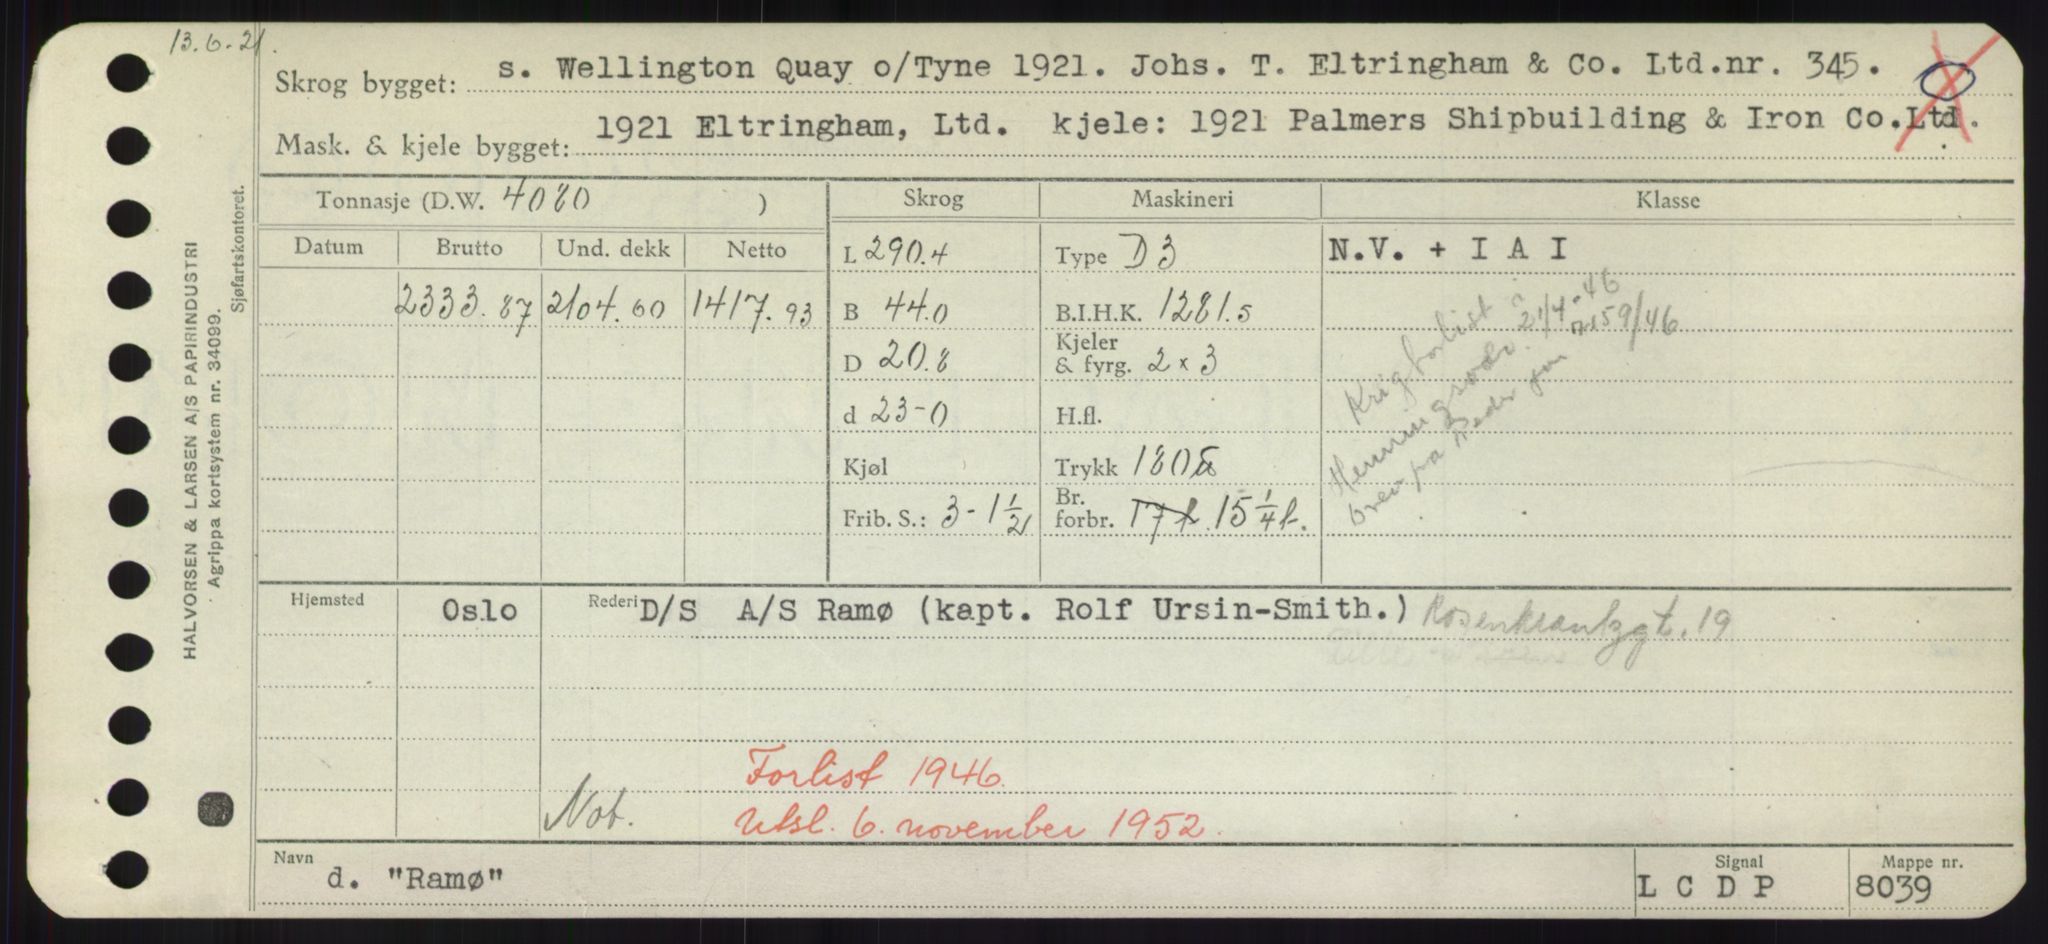 13.6.21.
Skrog bygget: s. Wellington Quay o/Tyne 1921. Johs. T. Eltringham & Co. Ltd.nr. 345.
Mask. & kjele bygget: 1921 Eltringham, Ltd. kjele: 1921 Palmers Shipbuilding & Iron Co.Ltd.
Tonnasje (D.W. 4080 ) Skrog Maskineri Klasse
Datum Brutto Und. dekk Netto L 290.4 Type D 3 N.V. + I A I
2333.87 2104.60 1417.93 B 44.0 B.I.H.K. 1281.5
D 20.8 Kjeler & fyrg. 2 x 3
d 23-0 H.fl.
Kjøl Trykk 180
Frib. S.: 3-1 1/2 Br. forbr. 17 t. 15 1/4 t.
Krigforlist i
Henningsvær. 21/4-46
brev på 59/46
Hjemsted Oslo Rederi D/S A/S Ramø (kapt. Rolf Ursin-Smith.) Rosenkrantzgt. 19
Forlist 1946.
Not. Utsl. 6. november 1952.
Navn d. "Ramø" Signal L C D P Mappe nr. 8039
HALVORSEN & LARSEN A/S PAPIRINDUSTRI
Agrippa kortsystem nr. 34099.
Sjøfartskontoret.